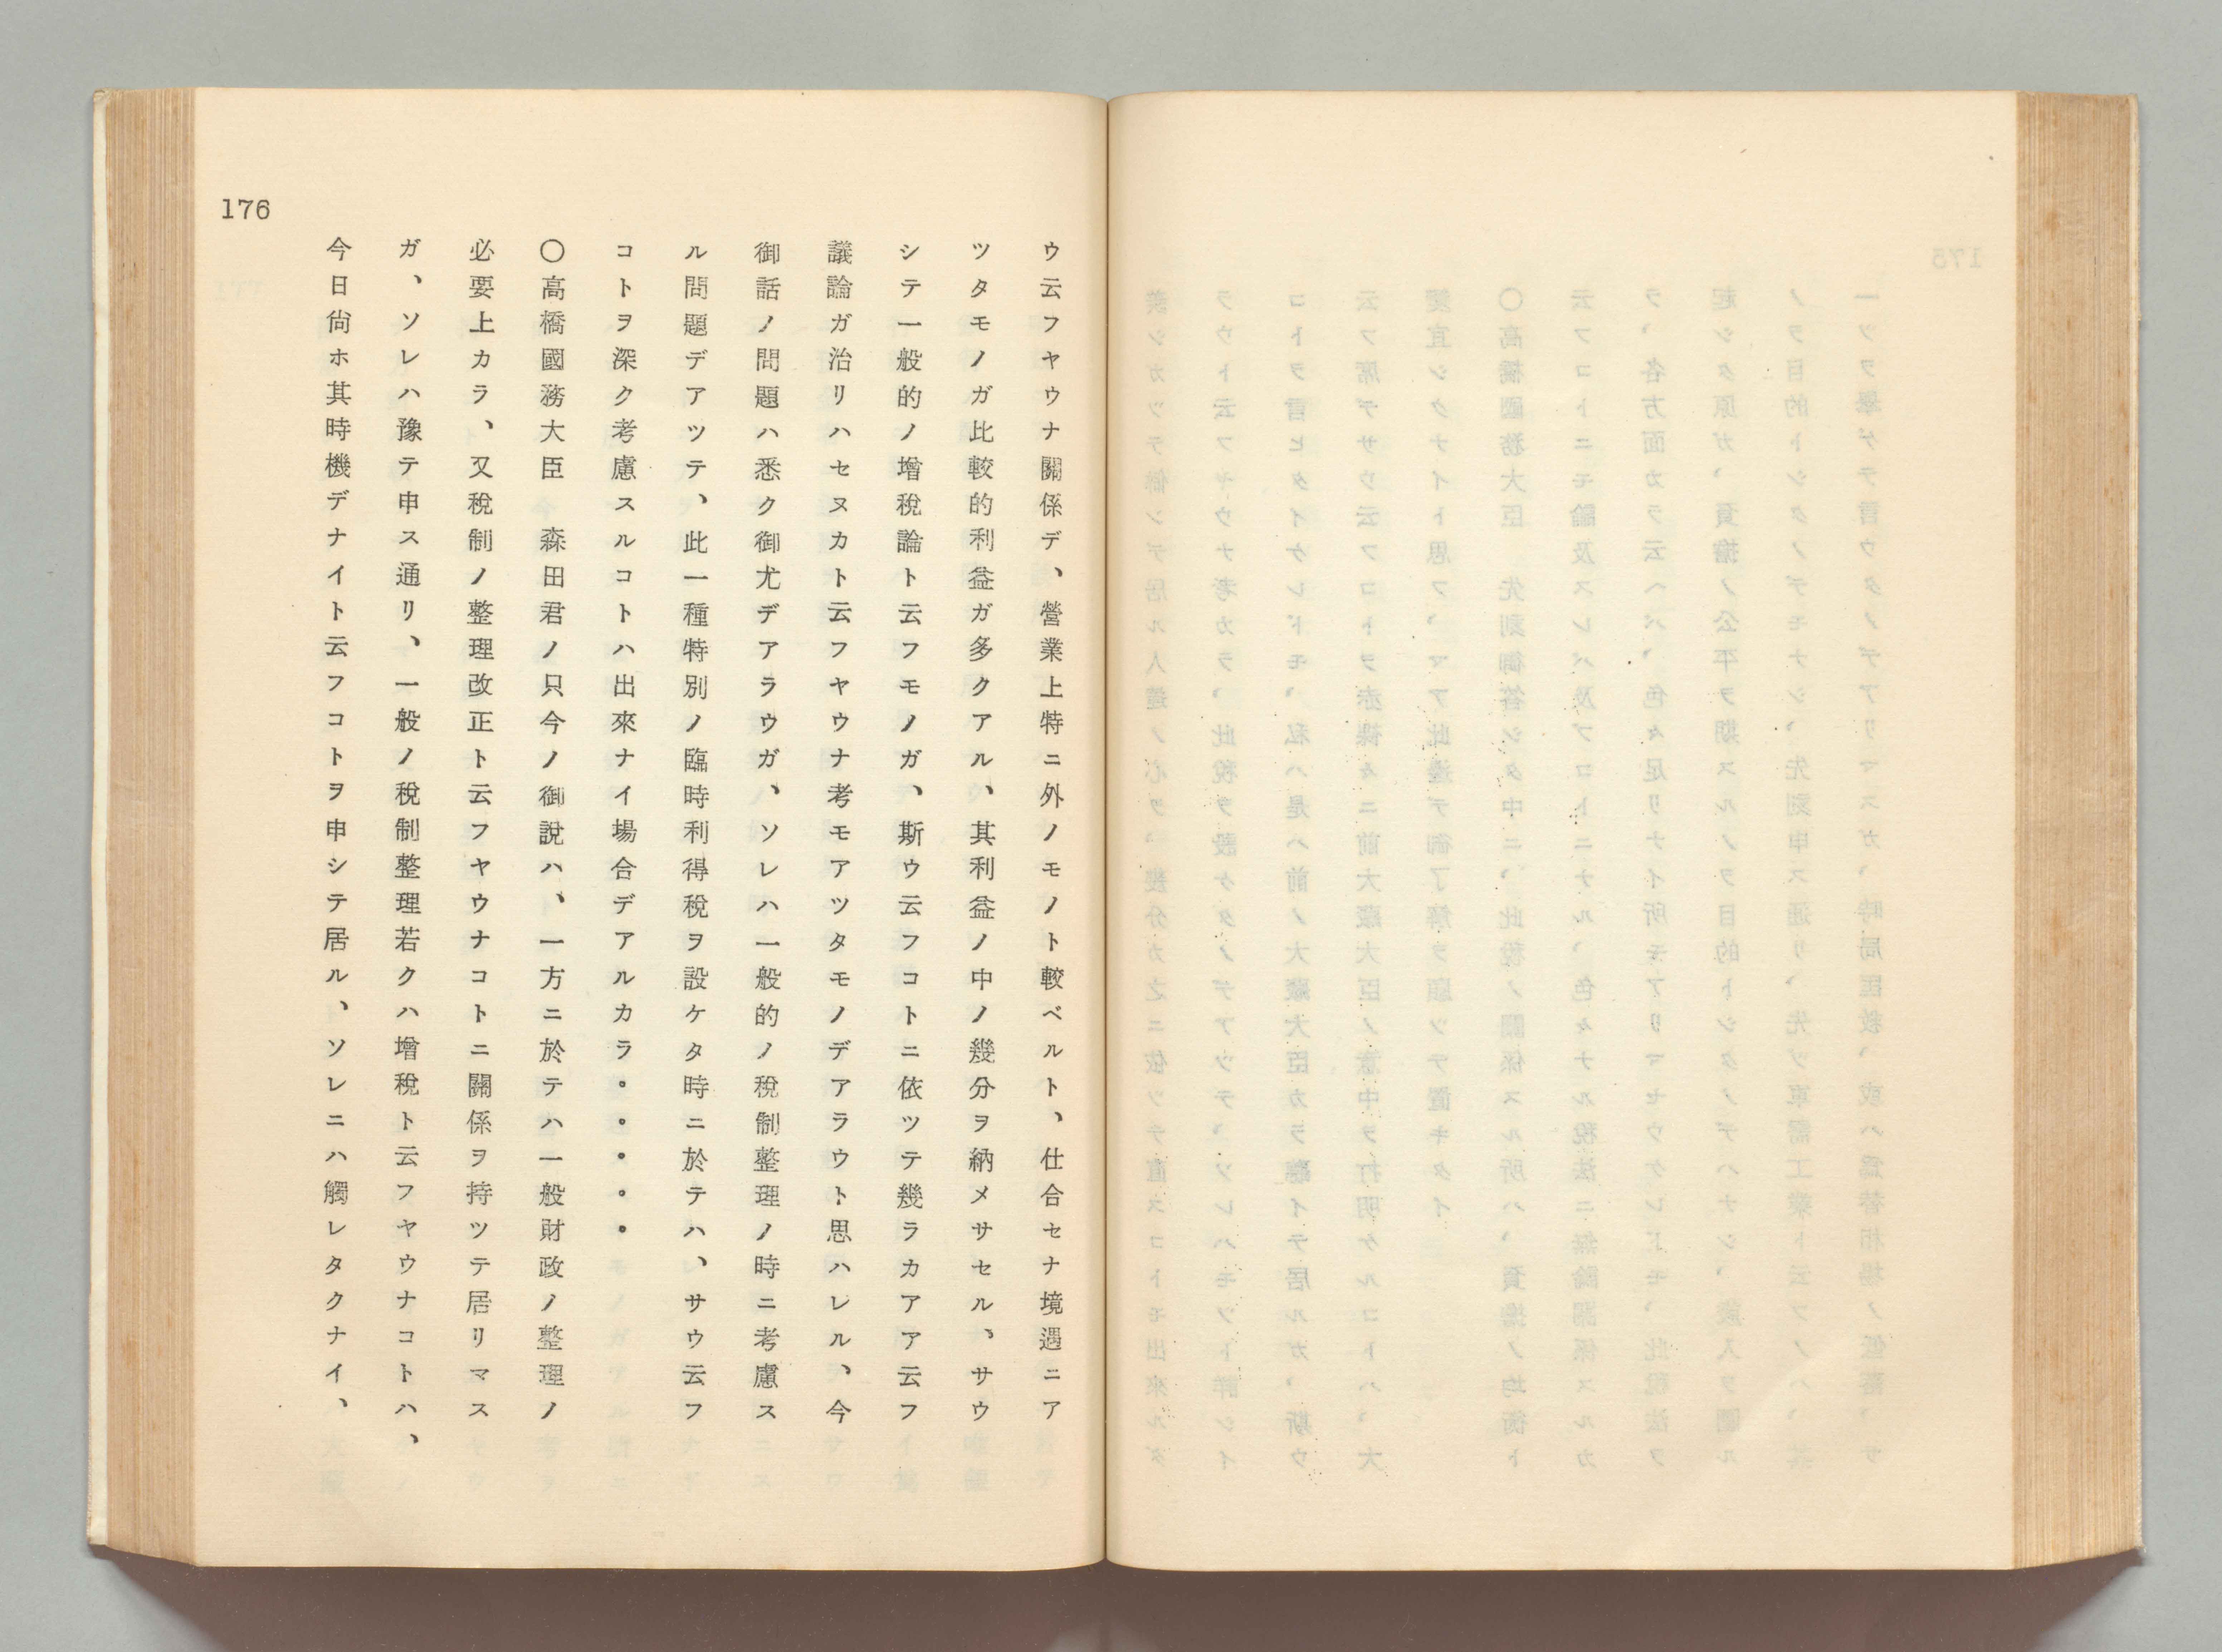 176
ウ云フヤウナ關係デ、營業上特ニ外ノモノト較ベルト、仕合セナ境遇ニア
ツタモノガ比較的利益ガ多クアル、其利益ノ中ノ幾分ヲ納メサセル、サウ
シテ一般的ノ增稅論ト云フモノガ、斯ウ云フコトニ依ツテ幾ラカアア云フ
議論ガ治リハセヌカト云フヤウナ考モアツタモノデアラウト思ハレル、今
御話ノ問題ハ悉ク御尤デアラウガ、ソレハ一般的ノ稅制整理ノ時ニ考慮ス
ル問題デアツテ、此一種特別ノ臨時利得稅ヲ設ケタ時ニ於テハ、サウ云フ
コトヲ深ク考慮スルコトハ出來ナイ場合デアルカラ。。。。。
〇高橋國務大臣　森田君ノ只今ノ御說ハ、一方ニ於テハ一般財政ノ整理ノ
必要上カラ、又稅制ノ整理改正ト云フヤウナコトニ關係ヲ持ツテ居リマス
ガ、ソレハ豫テ申ス通リ、一般ノ稅制整理若クハ增稅ト云フヤウナコトハ、
今日尙ホ其時機デナイト云フコトヲ申シテ居ル、ソレニハ觸レタクナイ、